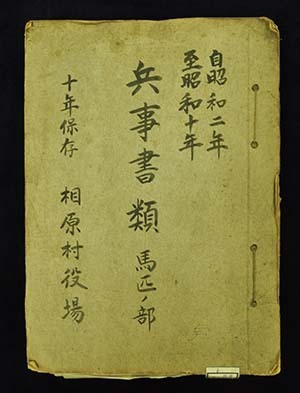 自昭和二年
至昭和十年
兵事書類 馬匹ノ部
十年保存 相原村役場